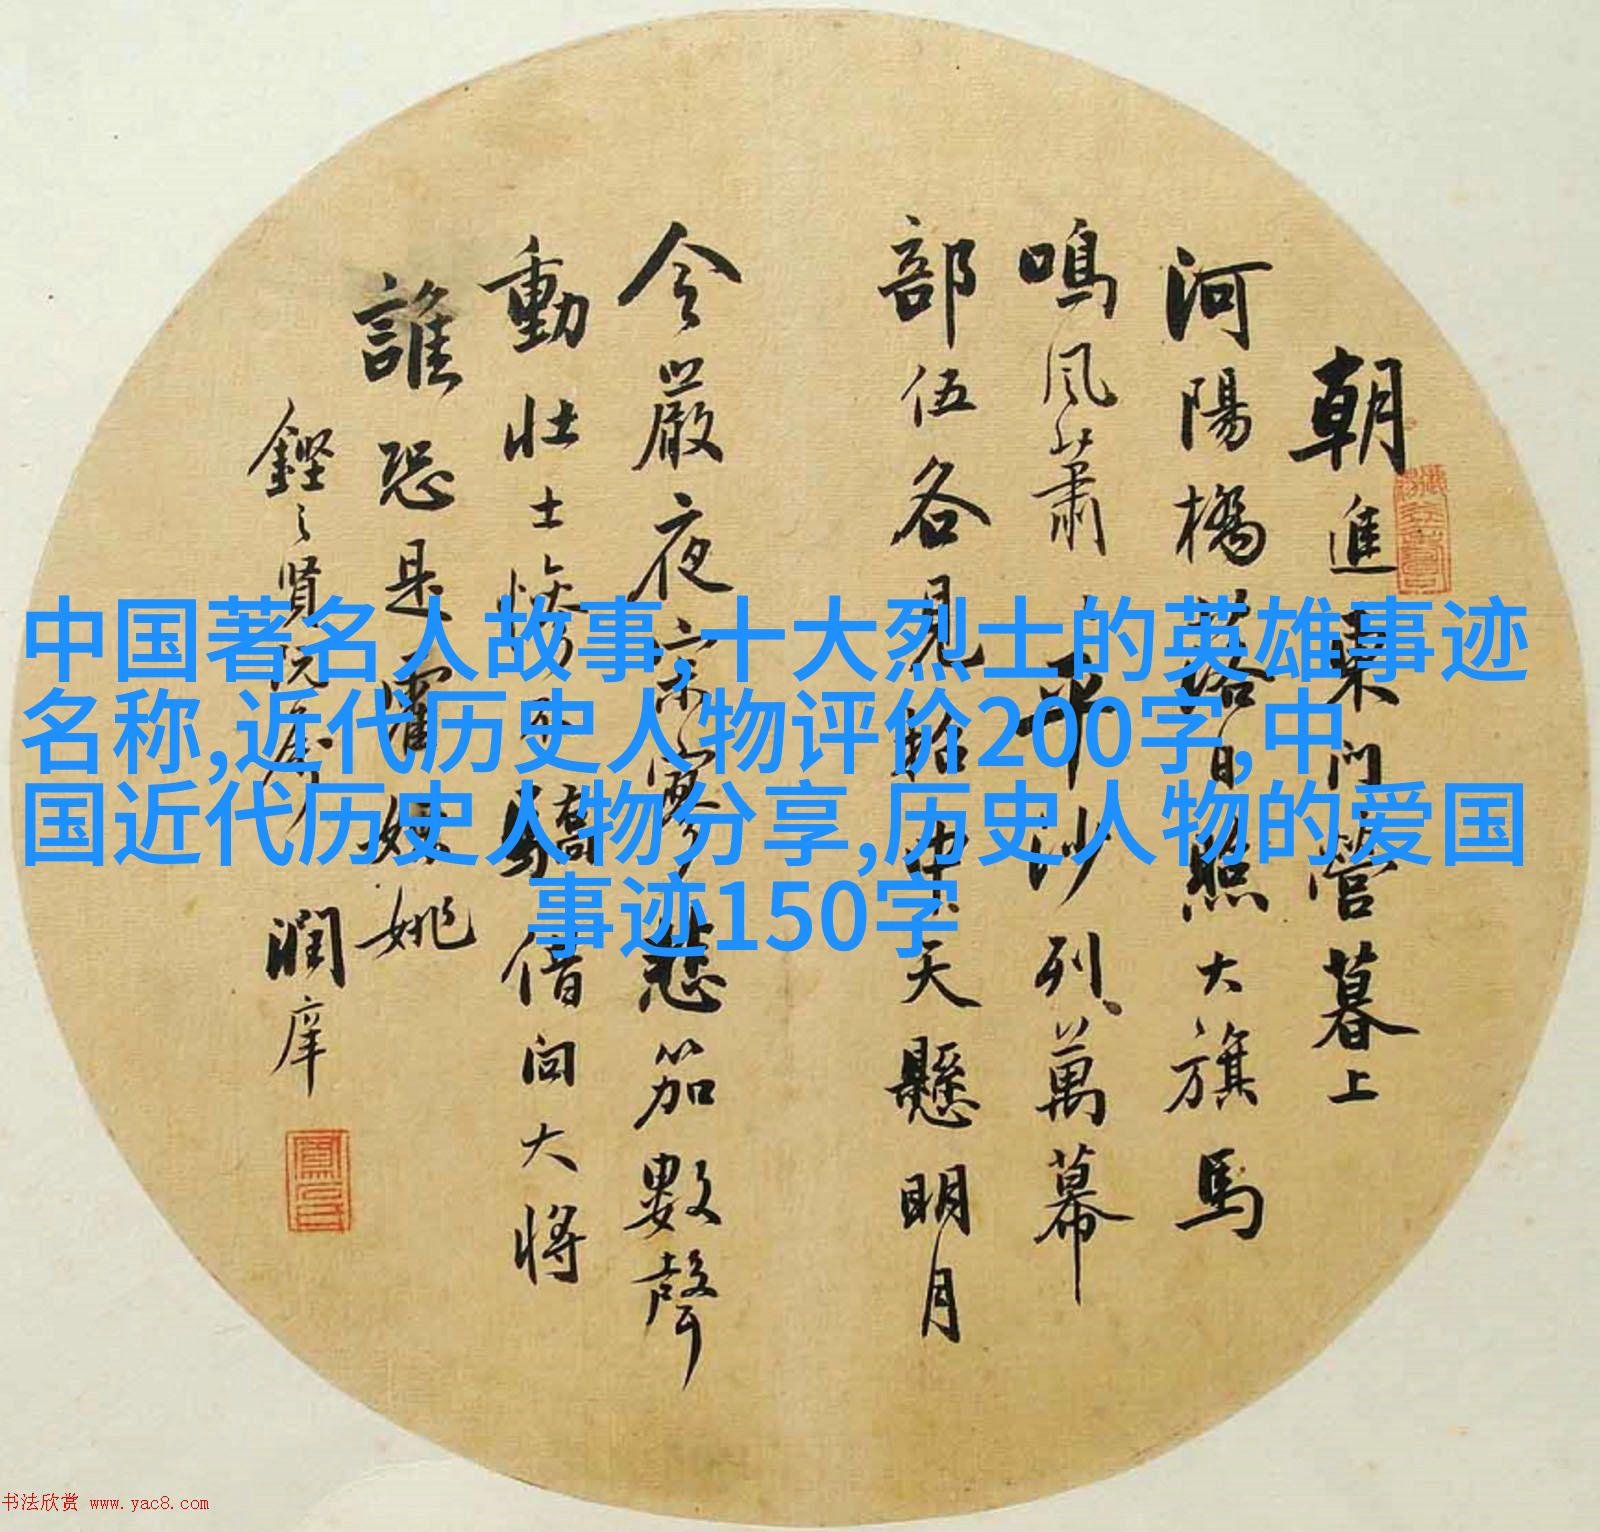 朝進東門營暮上
河陽橋落日照大旗馬
鳴風蕭平沙列萬幕
部伍各見招中天懸明月
令嚴夜寂寥悲笳數聲
動壯士慘不驕借問大將
誰恐是霍嫖姚
賢阮屬
潤庠
中国著名人故事,十大烈士的英雄事迹
名称,近代历史人物评价200字,中
国近代历史人物分享,历史人物的爱国
事迹150字
书法欣赏 www.yac8.com